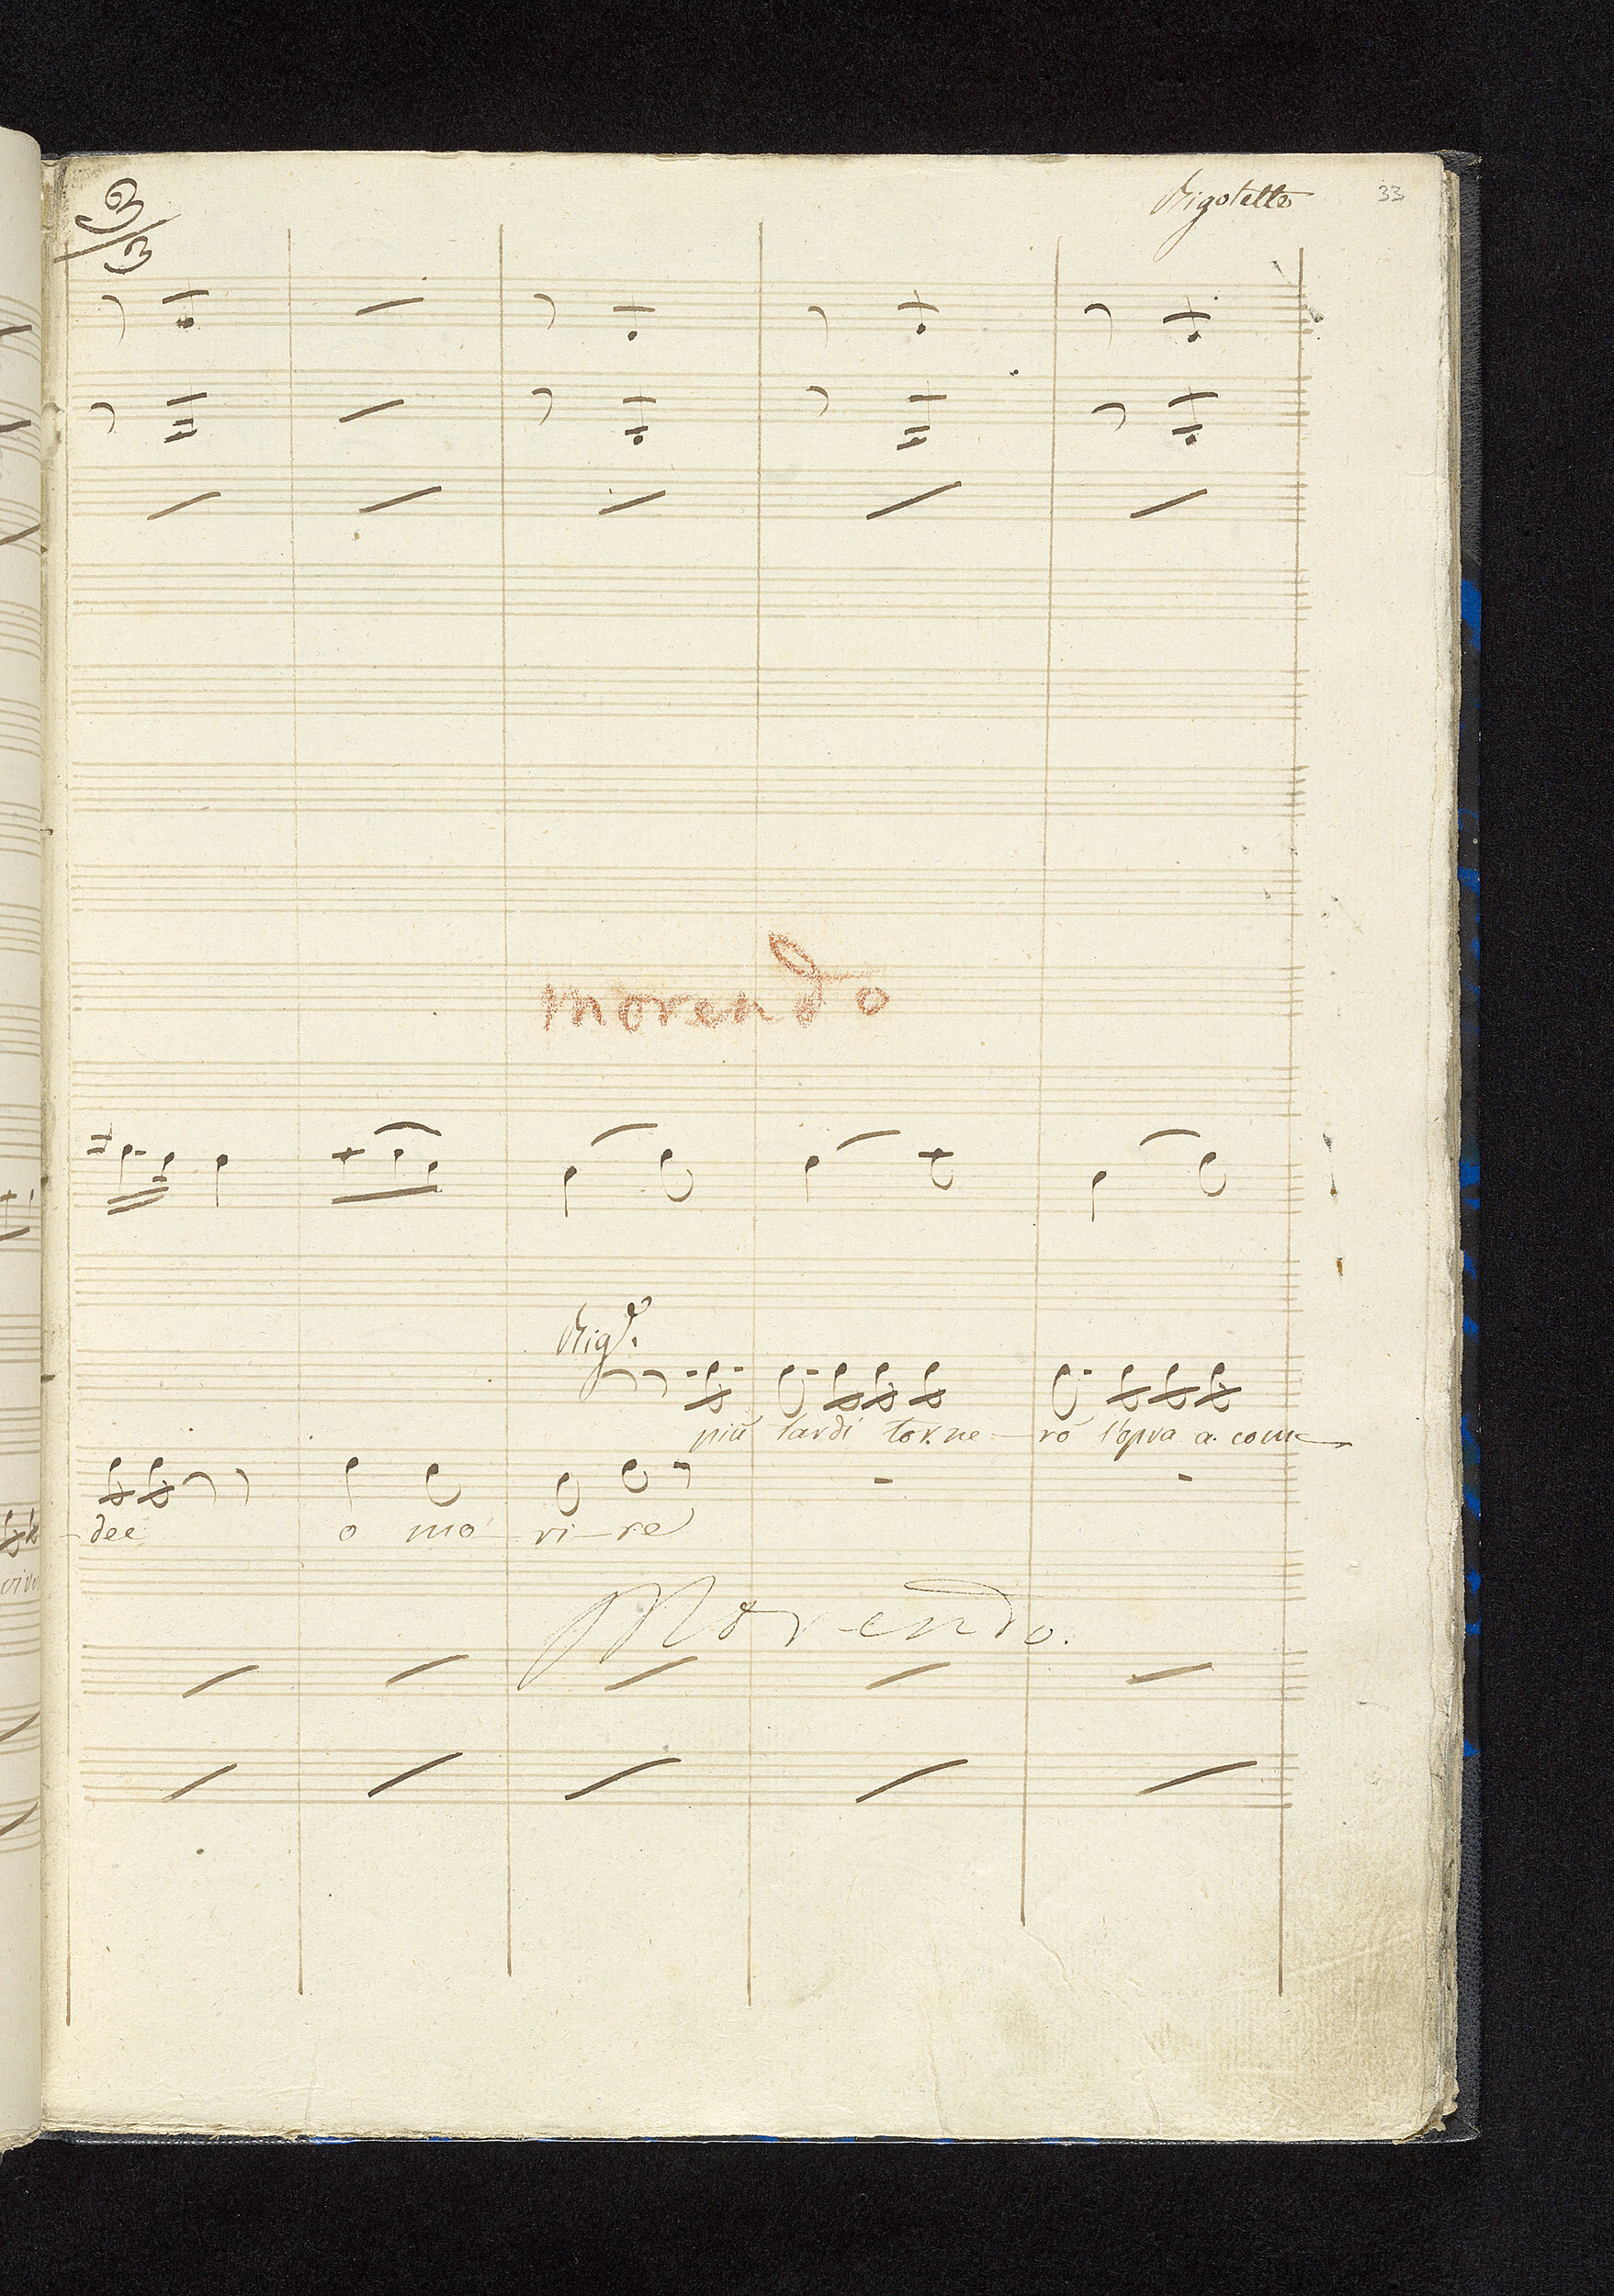 3/3
Rigoletto 33
morendo
Rigo.
più tardi torne-rò l'opra a com-
-dee o mo-ri-re
vive
Morendo.